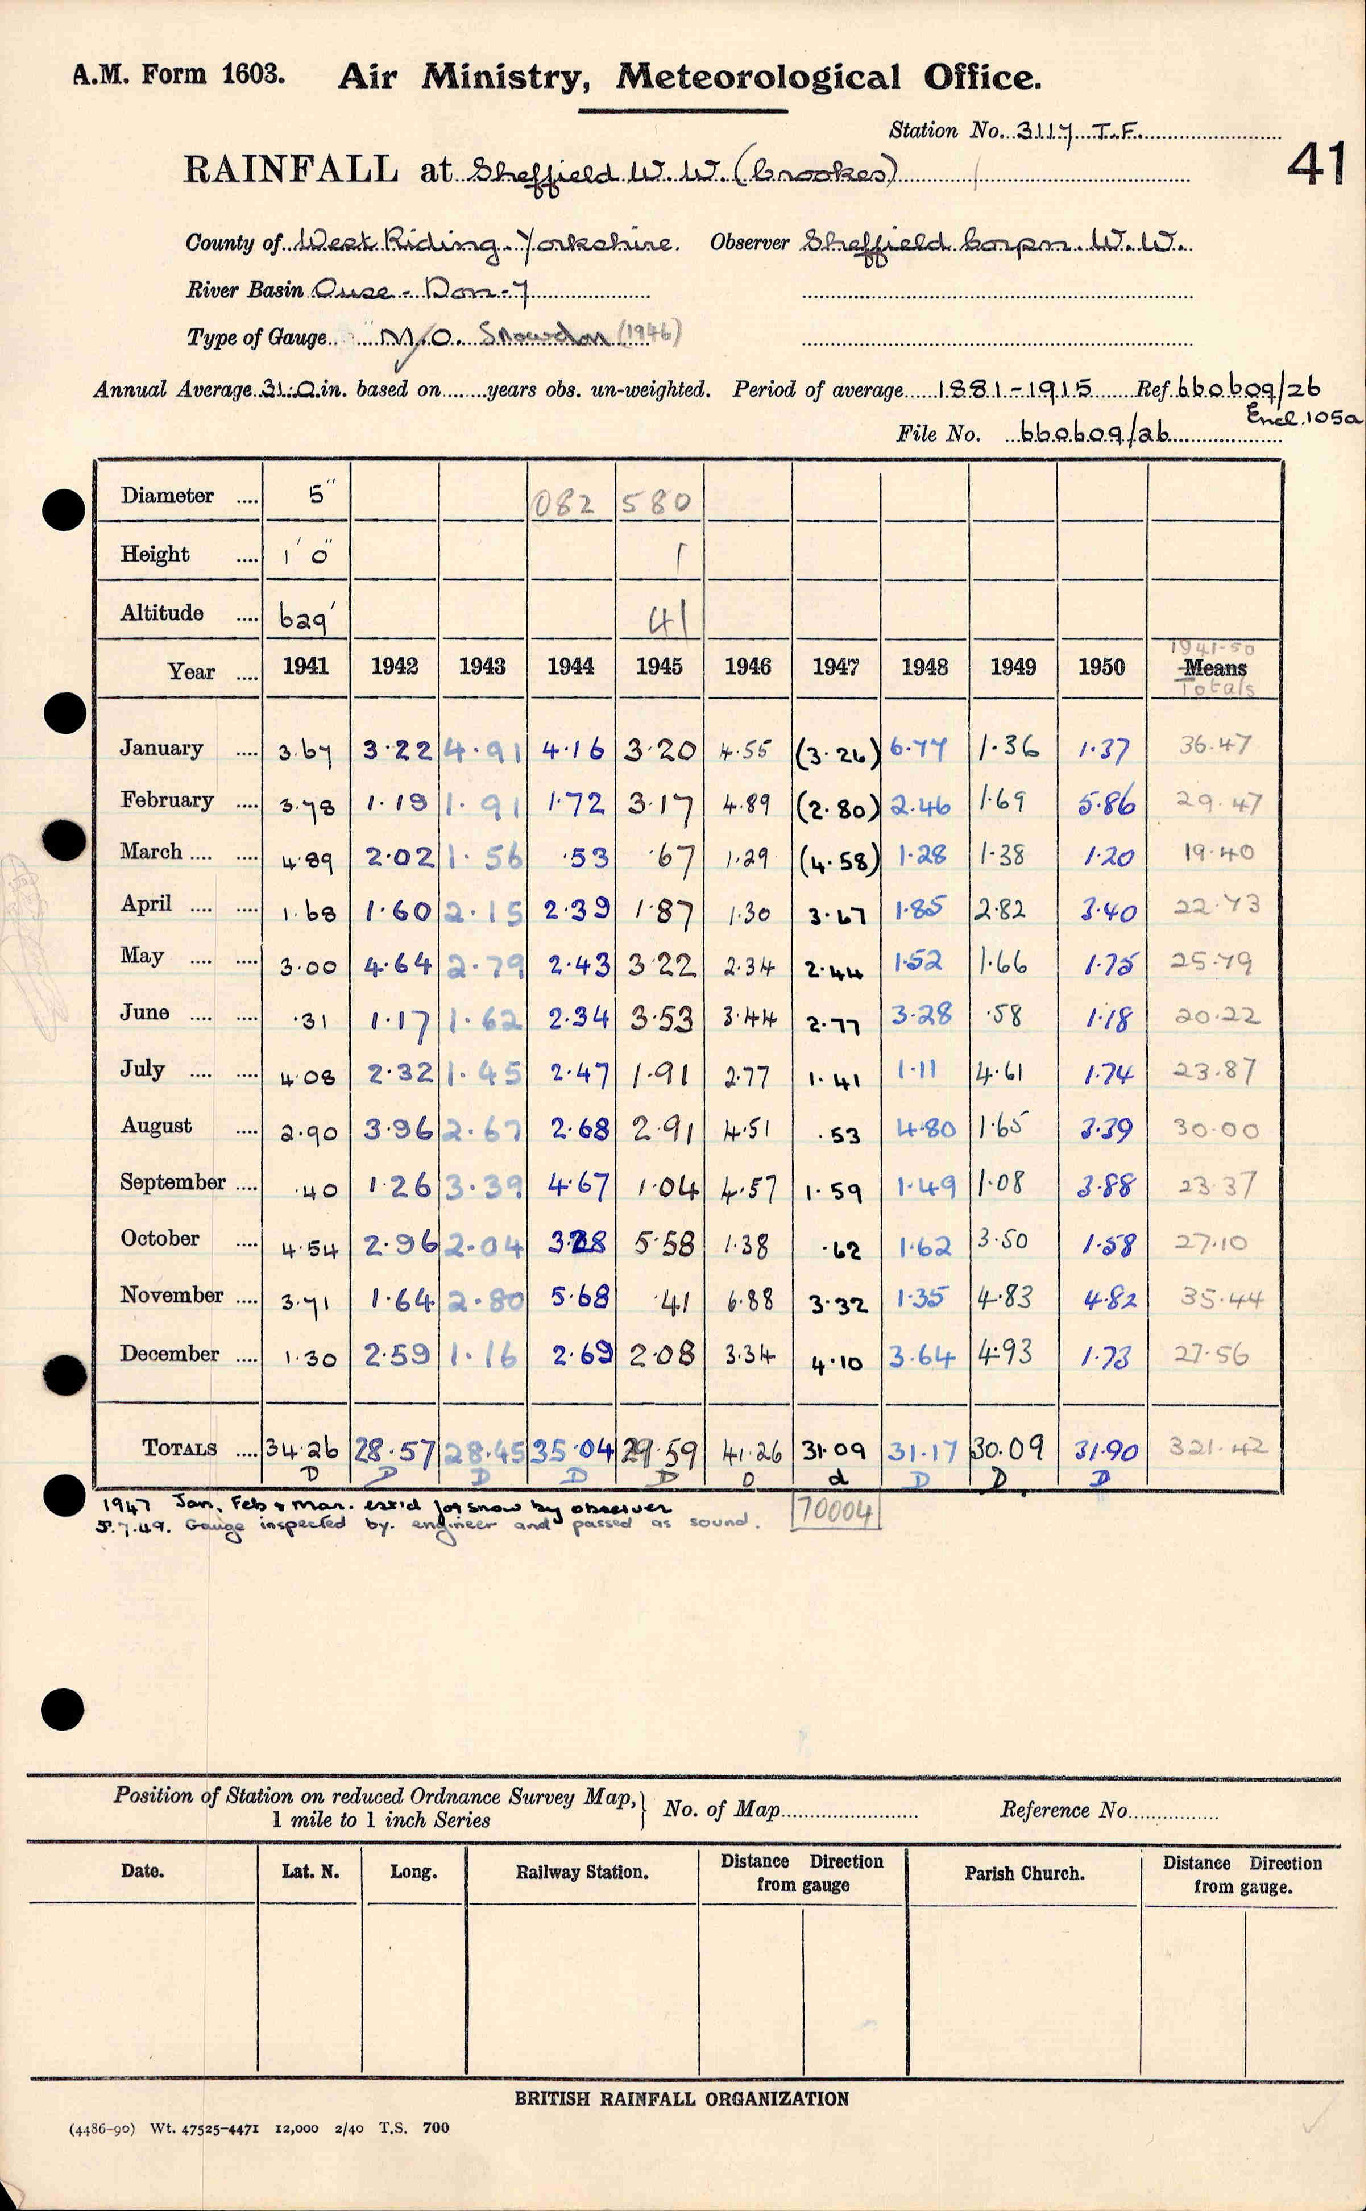 A.M. Form 1603. Air Ministry, Meteorological Office.
Station No. 3117 T.F.
41
RAINFALL at Sheffield W.W. (Crookes)
County of West Riding Yorkshire. Observer Sheffield Corpn. W.W.
River Basin Ouse - Don - 7
Type of Gauge M.O. Snowdon (1946)
Annual Average 31.0 in. based on years obs. un-weighted. Period of average 1881-1915 Ref 660609/26
Encl. 105a
File No. 660609/26
Diameter 5" 082 580
Height 1' 0" 1
Altitude 629' 41
1941-50
Year 1941 1942 1943 1944 1945 1946 1947 1948 1949 1950 Means
Totals
January 3.67 3.22 4.91 4.16 3.20 4.55 (3.26) 6.77 1.36 1.37 36.47
February 3.78 1.19 1.91 1.72 3.17 4.89 (2.80) 2.46 1.69 5.86 29.47
March 4.89 2.02 1.56 .53 .67 1.29 (4.58) 1.28 1.38 1.20 19.40
April 1.68 1.60 2.15 2.39 1.87 1.30 3.67 1.85 2.82 3.40 22.73
May 3.00 4.64 2.79 2.43 3.22 2.34 2.44 1.52 1.66 1.75 25.79
June .31 1.17 1.62 2.34 3.53 3.44 2.77 3.28 .58 1.18 20.22
July 4.08 2.32 1.45 2.47 1.91 2.77 1.41 1.11 4.61 1.74 23.87
August 2.90 3.96 2.67 2.68 2.91 4.51 .53 4.80 1.65 3.39 30.00
September .40 1.26 3.39 4.67 1.04 4.57 1.59 1.49 1.08 3.88 23.37
October 4.54 2.96 2.04 3.28 5.58 1.38 .62 1.62 3.50 1.58 27.10
November 3.71 1.64 2.80 5.68 .41 6.88 3.32 1.35 4.83 4.82 35.44
December 1.30 2.59 1.16 2.69 2.08 3.34 4.10 3.64 4.93 1.73 27.56
TOTALS 34.26 28.57 28.45 35.04 29.59 41.26 31.09 31.17 30.09 31.90 321.42
D D D D D D d D D D
1947 Jan, Feb & Mar. est'd for snow by observer
5.7.49. Gauge inspected by engineer and passed as sound. 70004
Position of Station on reduced Ordnance Survey Map, No. of Map Reference No.
1 mile to 1 inch Series
Date. Lat. N. Long. Railway Station. Distance Direction from gauge Parish Church. Distance Direction from gauge.
BRITISH RAINFALL ORGANIZATION
(4486-90) Wt. 47525-4471 12,000 2/40 T.S. 700